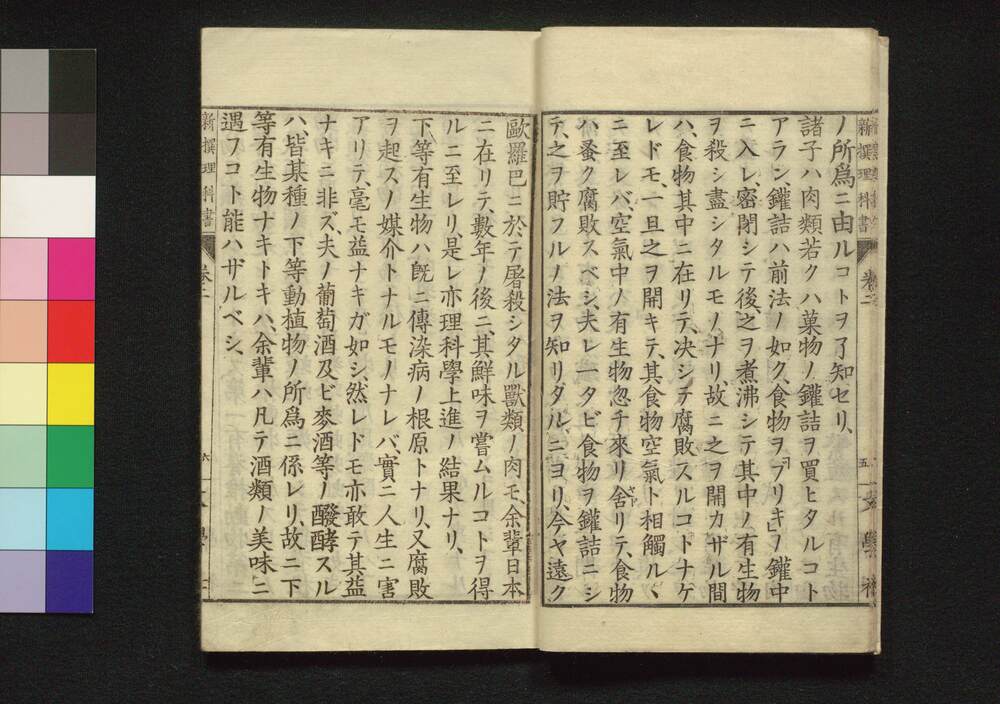 新撰理科書
卷二
五
文學社
ノ所爲ニ由ルコトヲ了知セリ、
諸子ハ肉類若クハ菓物ノ鑵詰ヲ買ヒタルコト
アラン、鑵詰ハ前法ノ如ク、食物ヲ「ブリキ」ノ鑵中
ニ入レ、密閉シテ後、之ヲ煮沸シテ其中ノ有生物
ヲ殺シ盡シタルモノナリ、故ニ之ヲ開カザル間
ハ、食物其中ニ在リテ、決シテ腐敗スルコトナケ
レドモ、一旦之ヲ開キテ、其食物空氣ト相觸ルヽ
ニ至レバ、空氣中ノ有生物忽チ來リ舍リテ、食物
ハ蚤ク腐敗スベシ、夫レ一タビ食物ヲ鑵詰ニシ
テ、之ヲ貯フルノ法ヲ知リタルニヨリ、今ヤ遠ク
歐羅巴ニ於テ屠殺シタル獸類ノ肉モ、余輩日本
ニ在リテ、數年ノ後ニ、其鮮味ヲ嘗ムルコトヲ得
ルニ至レリ、是レ亦理科學上進ノ結果ナリ、
下等有生物ハ既ニ傳染病ノ根原トナリ、又腐敗
ヲ起スノ媒介トナルモノナレバ、實ニ人生ニ害
アリテ、毫モ益ナキガ如シ、然レドモ亦敢テ其益
ナキニ非ズ、夫ノ葡萄酒及ビ麥酒等ノ醱酵スル
ハ、皆某種ノ下等動植物ノ所爲ニ係レリ、故ニ下
等有生物ナキトキハ、余輩ハ凡テ酒類ノ美味ニ
遇フコト能ハザルベシ、
新撰理科書
卷二
六